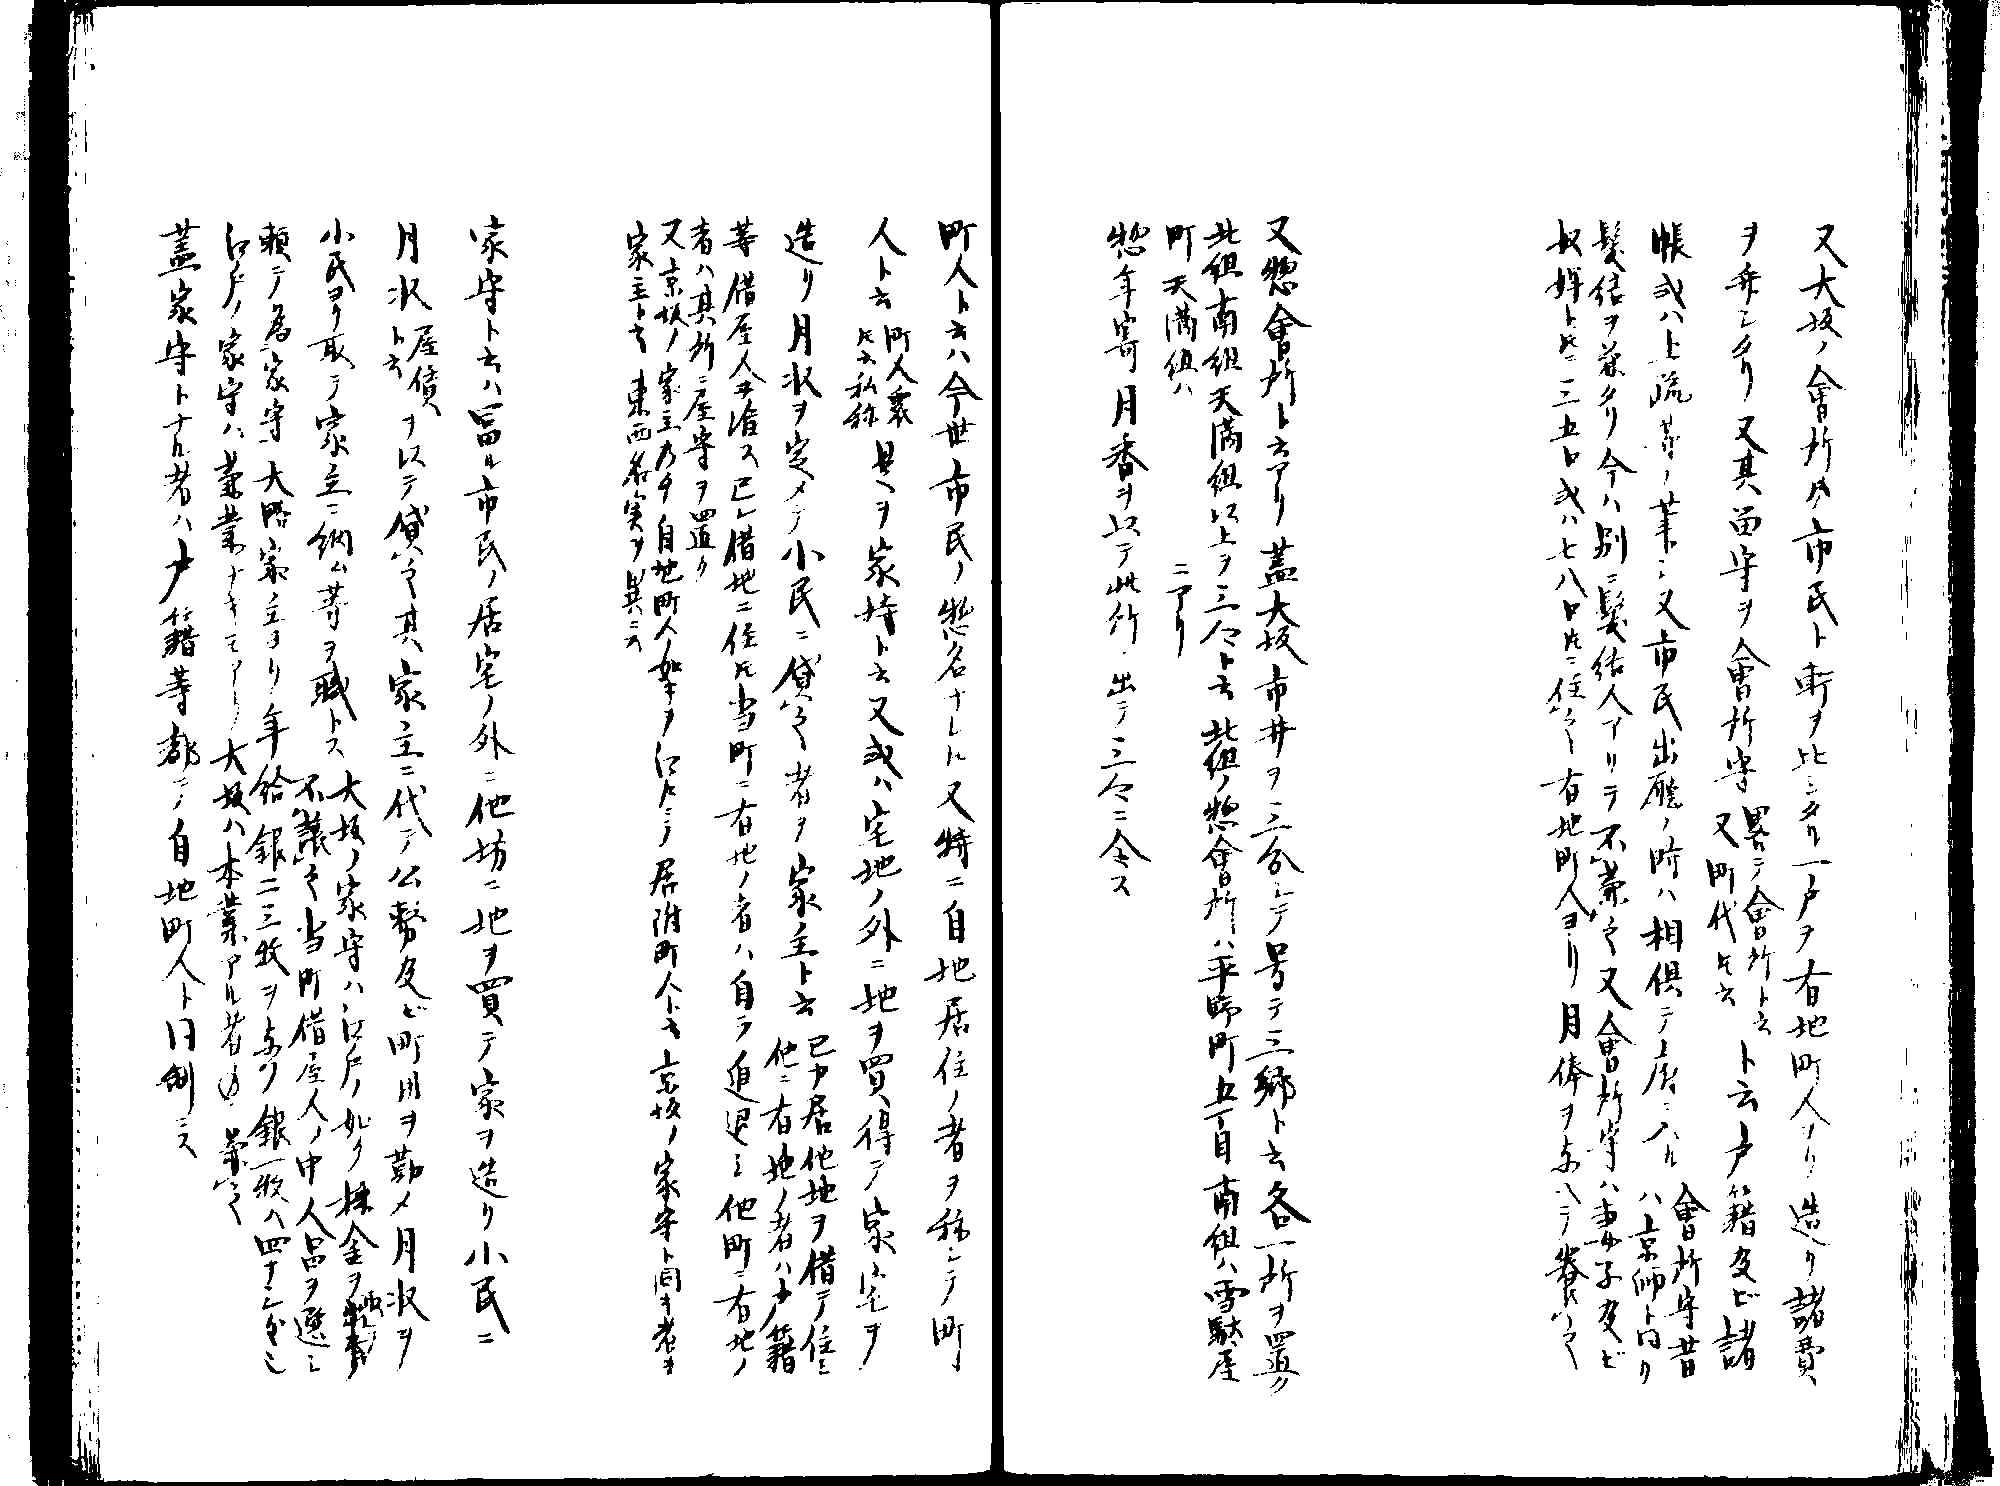 又大坂ノ會所ハ市民ト軒ヲ比シタリ一戸ヲ有地町人ヨリ造リ諸費
ヲ弁シタリ又其留守ヲ會所守
畧シテ會所ト云
又町代トモ云
ト云戸籍及ビ諸
帳或ハ上疏等ノ筆ニシ又市民出廳ノ時ハ相倶テ廳ニ入ル
會所守昔
ハ京師ト同ク
髪結ヲ兼タリ今ハ別ニ髪結人アリテ不兼之又會所守ハ妻子及ビ
奴婢トモニ三五口或ハ七八口トモニ住ス之有地町人ヨリ月俸ヲ与ヘテ養フ之
又惣會所ト云アリ蓋大坂市井ヲ三分シテ号テ三郷ト云各一所ヲ置ク
北組南組天満組以上ヲ三郷ト云北組ノ惣會所ハ平野町五丁目南組ハ雪駄屋
町天満組ハ　　ニアリ
惣年寄月番ヲ以テ此所ニ出テ三郷ニ令ス
町人ト云ハ今世市民ノ惣名ナレトモ又特ニ自地居住ノ者ヲ称シテ町
人ト云
町人衆
トモ云私称
是ヲ家持ト云又或ハ宅地ノ外ニ地ヲ買得テ家宅ヲ
造リ月収ヲ定メテ小民ニ貸ス之者ヲ家主ト云
已ガ居他地ヲ借テ住ミ
他ニ有地ノ者ハ戸籍
等借屋人ニ准ス已レ借地ニ住トモ当町ニ有地ノ者ハ自ラ進退シ他町ニ有地ノ
者ハ其所ニ屋守ヲ置ク
又京坂ノ家主乃チ自地町人ノ如キヲ江戸ニテ居附町人ト云京坂ノ家守ト同キ者ヲ
家主ト云東西名実ヲ異ニス
家守ト云ハ冨ル市民ノ居宅ノ外ニ他坊ニ地ヲ買テ家ヲ造リ小民ニ
月収
屋賃
ト云
ヲ以テ貸ス之其家主ニ代テ公務及ビ町用ヲ勤メ月収ヲ
小民ヨリ取テ家主ニ納ム等ヲ職トス
大坂ノ家守ハ江戸ノ如ク株金ヲ
不費之当町借屋人ノ中人品ヲ選ミ
頼テ為家守大略家主ヨリ年給銀二三枚ヲ与フ銀一枚ハ四十三匁也
江戸ノ家守ハ兼業ナキモアリ大坂ハ本業アル者ノミ兼之
蓋家守トナル者ハ戸籍等都ニテ自地町人ト同制ニス